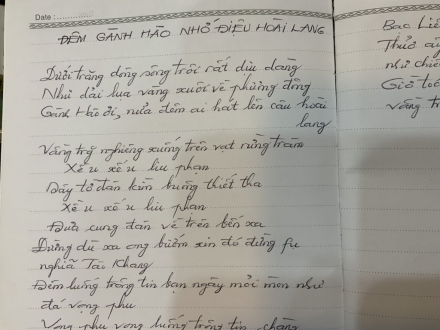 Date :
ĐÊM GÀNH HÀO NHỚ ĐIỆU HOÀI LANG
Dưới trăng dòng sông trôi rất dịu dàng
Như dải lụa vàng xuôi về phương đông
Gành Hào ơi, nửa đêm ai hát lên câu hoài
lang
Vầng trăng nghiêng xuống trên vạt rừng tràm
Xề u xế u liu phan
Dây tơ đàn kìm buông thiết tha
Xề u xế u liu phan
Đưa cung đàn về trên bến xa
Đường dù xa ong bướm xin đó đừng fụ
nghĩa Tào Khang
Đêm luống trông tin bạn ngày mỏi mòn như
đá vọng phu
Vọng phu vọng luống trông tin chàng
Bạc Liê
Thức
như chiế
Giờ
vầng t